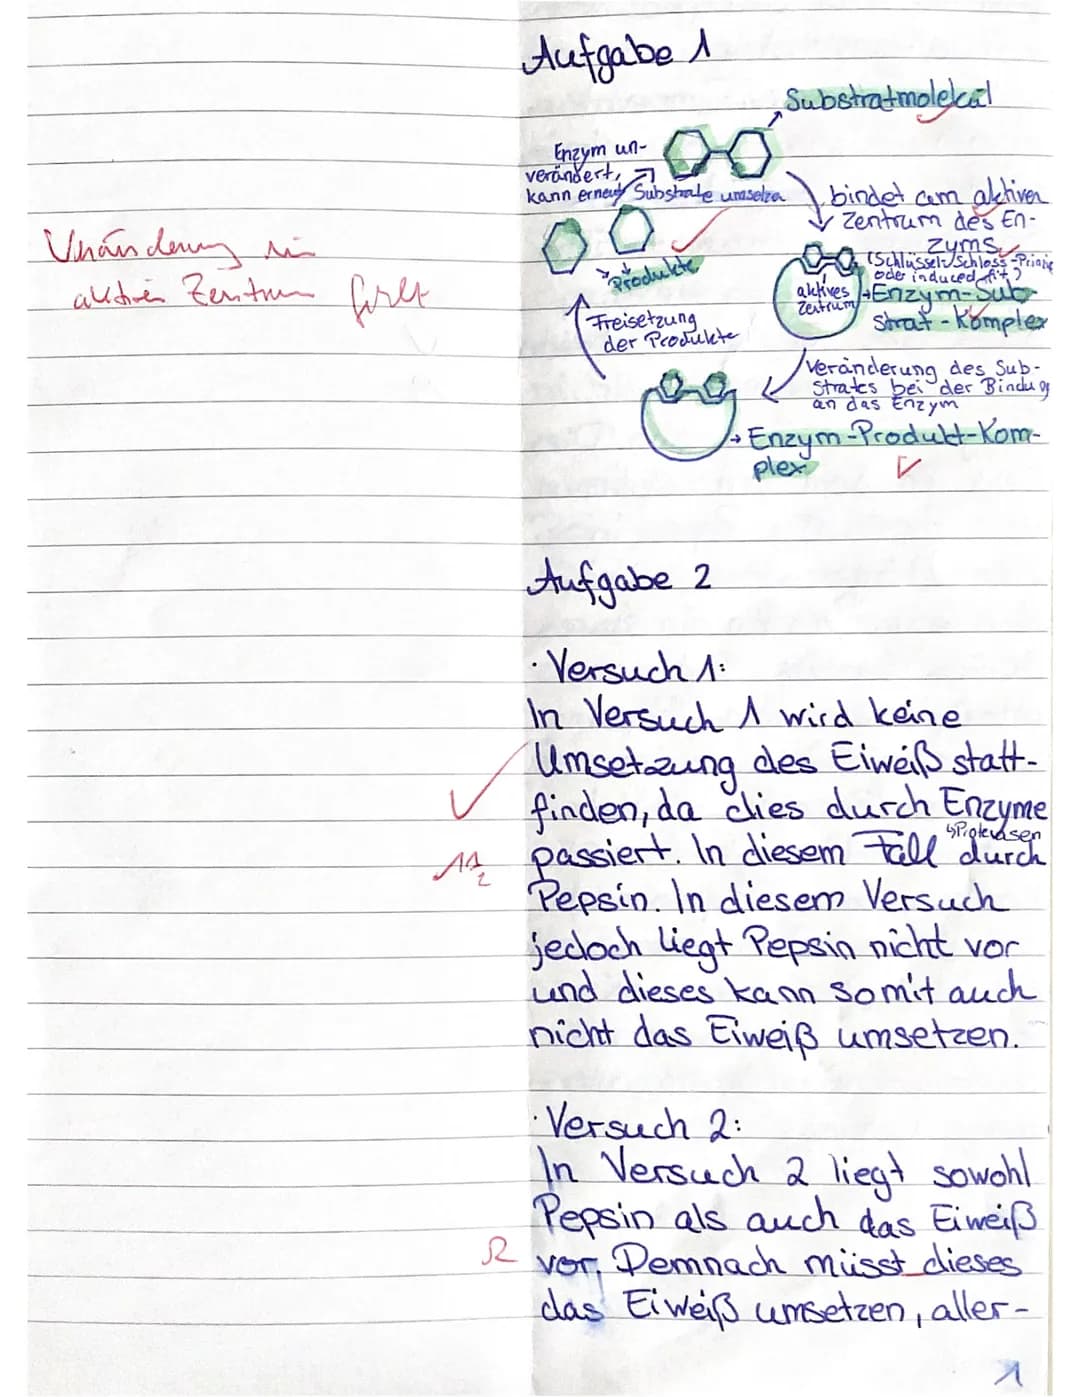 Aufgabe 1
Substratmolekül
Enzym un-
verändert,
kann erneut Substrate umsetzen
bindet am aktiven
Zentrum des En-
zyms
(Schlüssel-Schloss-Prinzip
oder induced-fit)
aktives
Zentrum
Enzym-Sub-
strat-Komplex
Produkte
Freisetzung
der Produkte
Veränderung des Sub-
strates bei der Bindung
an das Enzym
Enzym-Produkt-Kom-
plex
Veränderung im
aktiven Zentrum fehlt
Aufgabe 2
· Versuch 1:
In Versuch 1 wird keine
Umsetzung des Eiweiß statt-
finden, da dies durch Enzyme
↳Proteasen
passiert. In diesem Fall durch
Pepsin. In diesem Versuch
jedoch liegt Pepsin nicht vor
und dieses kann somit auch
nicht das Eiweiß umsetzen.
· Versuch 2:
In Versuch 2 liegt sowohl
Pepsin als auch das Eiweiß
R vor. Demnach müsst dieses
das Eiweiß umsetzen, aller-
1